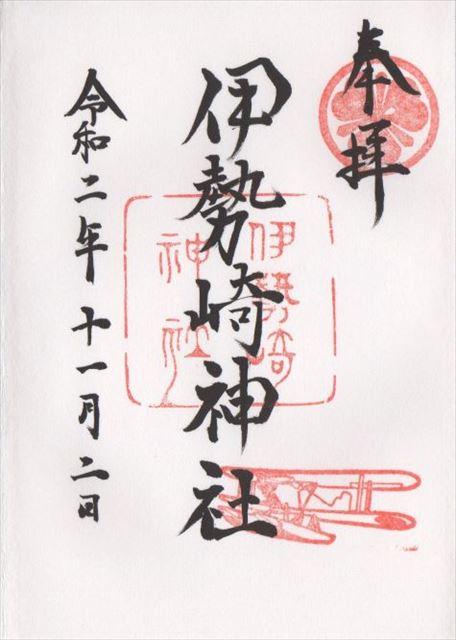 奉拝
伊勢崎神社
伊勢崎
神社
令和二年十一月二日